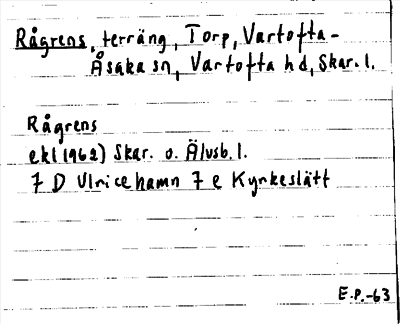 Rågrens, terräng, Torp, Vartofta-
Åsaka sn, Vartofta hd, Skar. l.
Rågrens
ekl (1962) Skar. o. Älvsb. l.
7 D Ulricehamn 7 e Kyrkeslätt
E.P.-63